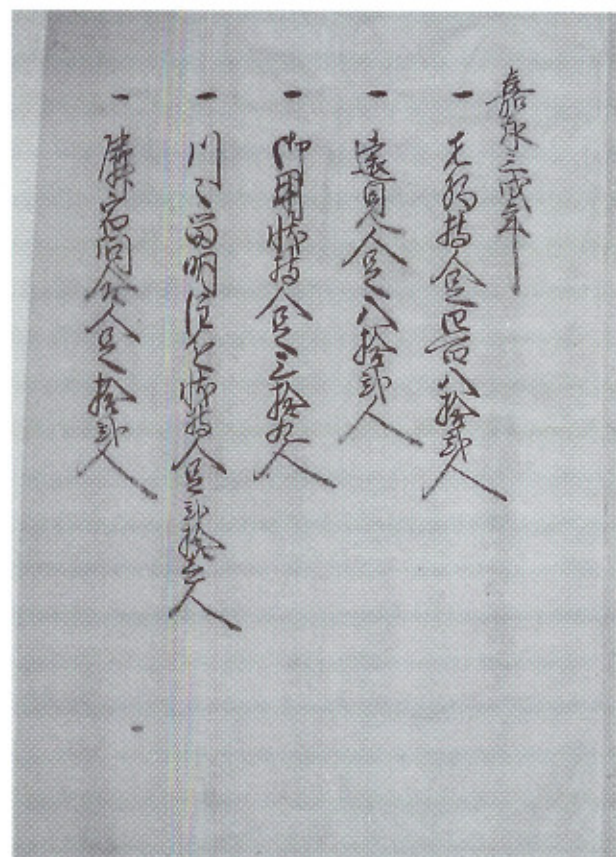 嘉永三戌年
一 先触持人足四百八拾弐人
一 遠見人足八拾弐人
一 御用状持人足三拾九人
一 川々留明注進状持人足弐拾壱人
一 宿問人足拾弐人